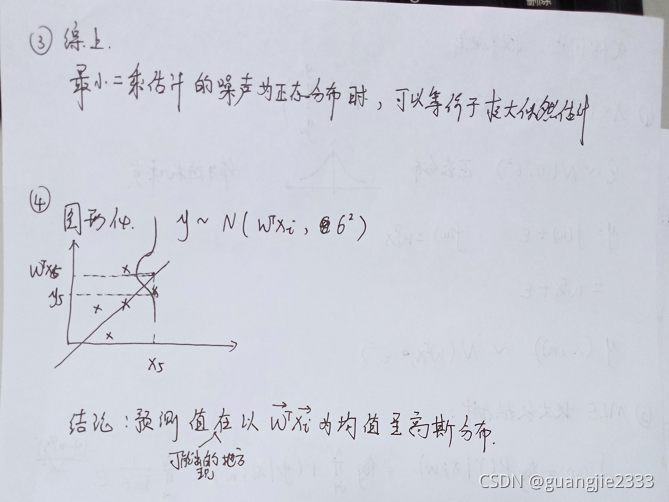 ③ 综上.
最小二乘估计的噪声为正态分布时，可以等价于极大似然估计
④ 图形化. y ~ N(wᵀxᵢ, σ²)
wᵀx₅
y₅
x₅
结论：预测值在以 w⃗ᵀx⃗ᵢ 为均值呈高斯分布.
可能出现的地方
CSDN @guangjie2333